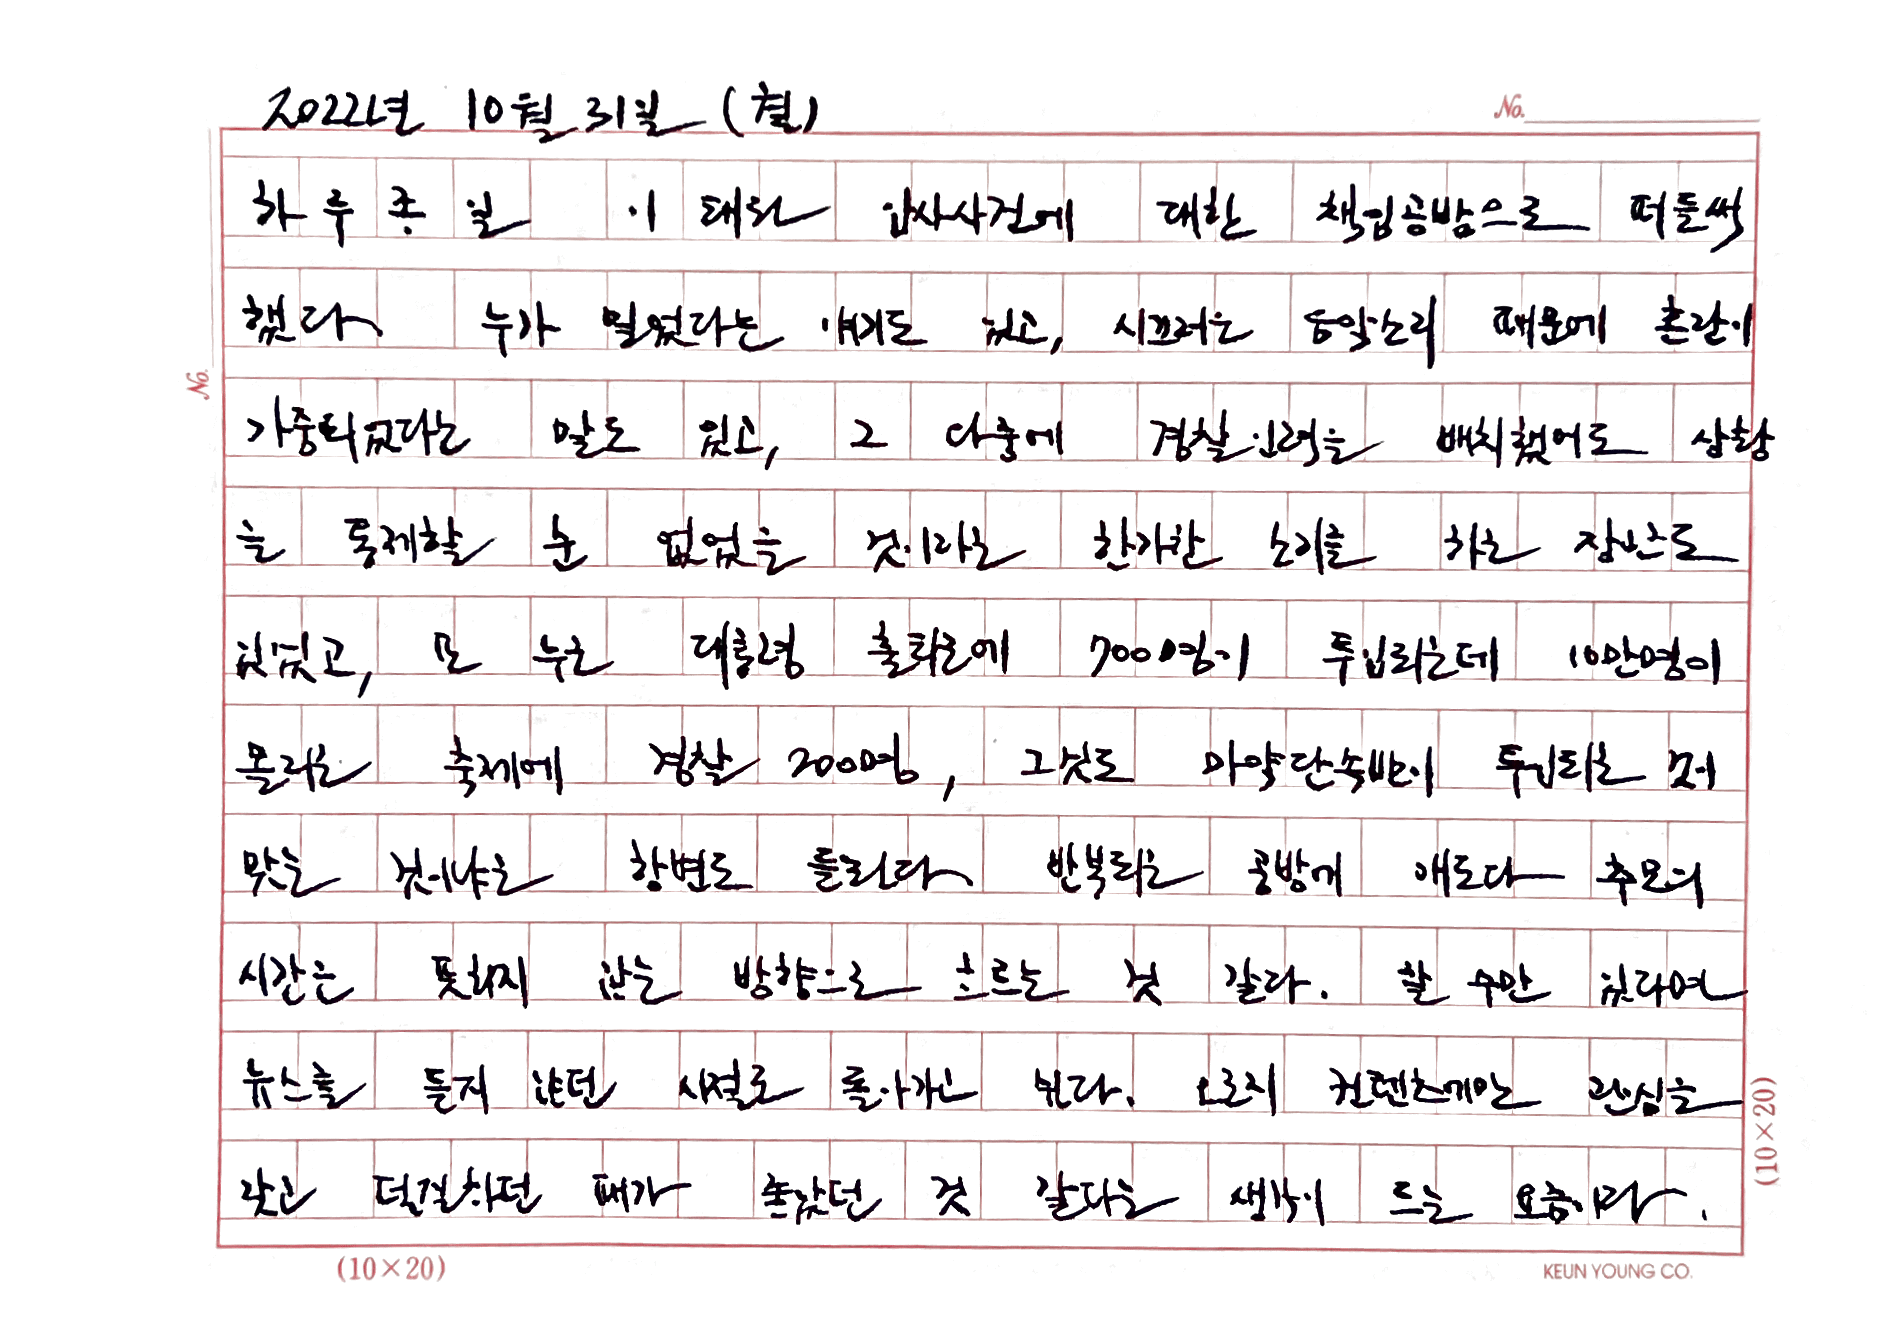 2022년 10월 31일 (월)
No.
하루종일 이태원 압사사건에 대한 책임공방으로 떠들썩
했다 누가 밀었다는 얘기도 있고, 시끄러운 음악소리 때문에 혼란이
가중되었다는 말도 있고, 그 다중에 경찰인력을 배치했어도 상황
을 통제할 순 없었을 것이라는 한가한 소리를 하는 장관도
있었고, 또 누는 대통령 출퇴근에 700명이 투입되는데 10만명이
몰리는 축제에 경찰 200명, 그것도 마약단속반이 투입되는 게
맞는 것이냐는 항변도 들린다 반복되는 공방에 애도다 추모의
시간은 뜻하지 않는 방향으로 흐르는 것 같다. 할 수만 있다면
뉴스를 듣지 않던 시절로 돌아가고 싶다. 오로지 컨텐츠에만 관심을
갖고 덕질하던 때가 좋았던 것 같다는 생각이 드는 요즘이다.
No.
(10×20)
(10×20)
KEUN YOUNG CO.